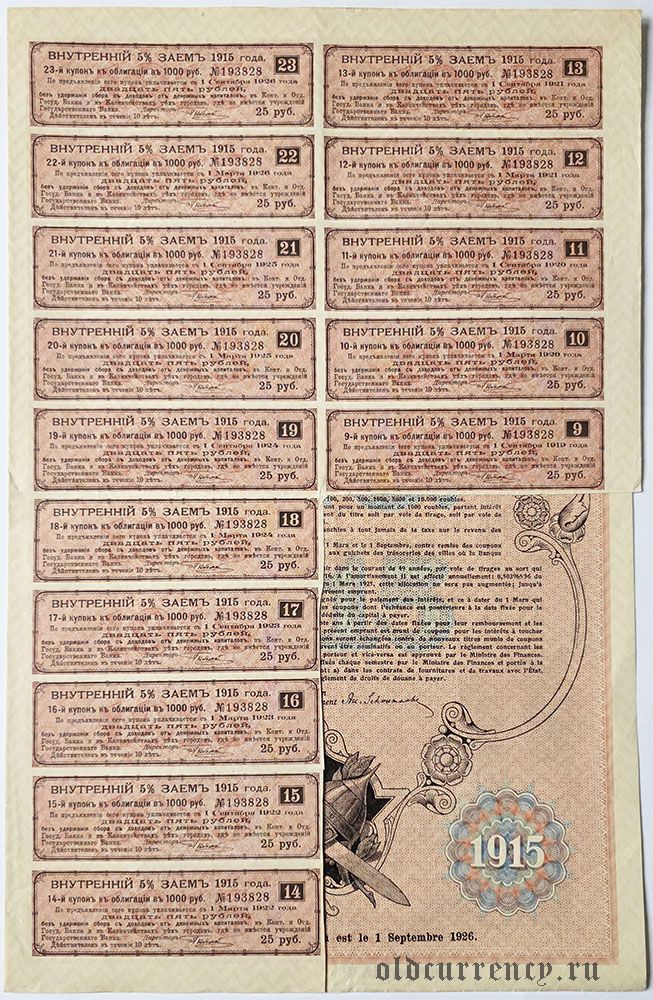 ВНУТРЕННІЙ 5% ЗАЕМЪ 1915 года. 23
23-й купонъ къ облигаціи въ 1000 руб. №193828
По предъявленіи сего купона уплачивается съ 1 Сентября 1926 года
двадцать пять рублей,
безъ удержанія сбора съ доходовъ отъ денежныхъ капиталовъ, въ Конт. и Отд.
Госуд. Банка и въ Казначействахъ тѣхъ городовъ, гдѣ не имѣется учрежденій
Государственнаго Банка. Директоръ
Дѣйствителенъ въ теченіе 10 лѣтъ. 25 руб.
ВНУТРЕННІЙ 5% ЗАЕМЪ 1915 года. 22
22-й купонъ къ облигаціи въ 1000 руб. №193828
По предъявленіи сего купона уплачивается съ 1 Марта 1926 года
двадцать пять рублей,
безъ удержанія сбора съ доходовъ отъ денежныхъ капиталовъ, въ Конт. и Отд.
Госуд. Банка и въ Казначействахъ тѣхъ городовъ, гдѣ не имѣется учрежденій
Государственнаго Банка. Директоръ
Дѣйствителенъ въ теченіе 10 лѣтъ. 25 руб.
ВНУТРЕННІЙ 5% ЗАЕМЪ 1915 года. 21
21-й купонъ къ облигаціи въ 1000 руб. №193828
По предъявленіи сего купона уплачивается съ 1 Сентября 1925 года
двадцать пять рублей,
безъ удержанія сбора съ доходовъ отъ денежныхъ капиталовъ, въ Конт. и Отд.
Госуд. Банка и въ Казначействахъ тѣхъ городовъ, гдѣ не имѣется учрежденій
Государственнаго Банка. Директоръ
Дѣйствителенъ въ теченіе 10 лѣтъ. 25 руб.
ВНУТРЕННІЙ 5% ЗАЕМЪ 1915 года. 20
20-й купонъ къ облигаціи въ 1000 руб. №193828
По предъявленіи сего купона уплачивается съ 1 Марта 1925 года
двадцать пять рублей,
безъ удержанія сбора съ доходовъ отъ денежныхъ капиталовъ, въ Конт. и Отд.
Госуд. Банка и въ Казначействахъ тѣхъ городовъ, гдѣ не имѣется учрежденій
Государственнаго Банка. Директоръ
Дѣйствителенъ въ теченіе 10 лѣтъ. 25 руб.
ВНУТРЕННІЙ 5% ЗАЕМЪ 1915 года. 19
19-й купонъ къ облигаціи въ 1000 руб. №193828
По предъявленіи сего купона уплачивается съ 1 Сентября 1924 года
двадцать пять рублей,
безъ удержанія сбора съ доходовъ отъ денежныхъ капиталовъ, въ Конт. и Отд.
Госуд. Банка и въ Казначействахъ тѣхъ городовъ, гдѣ не имѣется учрежденій
Государственнаго Банка. Директоръ
Дѣйствителенъ въ теченіе 10 лѣтъ. 25 руб.
ВНУТРЕННІЙ 5% ЗАЕМЪ 1915 года. 18
18-й купонъ къ облигаціи въ 1000 руб. №193828
По предъявленіи сего купона уплачивается съ 1 Марта 1924 года
двадцать пять рублей,
безъ удержанія сбора съ доходовъ отъ денежныхъ капиталовъ, въ Конт. и Отд.
Госуд. Банка и въ Казначействахъ тѣхъ городовъ, гдѣ не имѣется учрежденій
Государственнаго Банка. Директоръ
Дѣйствителенъ въ теченіе 10 лѣтъ. 25 руб.
ВНУТРЕННІЙ 5% ЗАЕМЪ 1915 года. 17
17-й купонъ къ облигаціи въ 1000 руб. №193828
По предъявленіи сего купона уплачивается съ 1 Сентября 1923 года
двадцать пять рублей,
безъ удержанія сбора съ доходовъ отъ денежныхъ капиталовъ, въ Конт. и Отд.
Госуд. Банка и въ Казначействахъ тѣхъ городовъ, гдѣ не имѣется учрежденій
Государственнаго Банка. Директоръ
Дѣйствителенъ въ теченіе 10 лѣтъ. 25 руб.
ВНУТРЕННІЙ 5% ЗАЕМЪ 1915 года. 16
16-й купонъ къ облигаціи въ 1000 руб. №193828
По предъявленіи сего купона уплачивается съ 1 Марта 1923 года
двадцать пять рублей,
безъ удержанія сбора съ доходовъ отъ денежныхъ капиталовъ, въ Конт. и Отд.
Госуд. Банка и въ Казначействахъ тѣхъ городовъ, гдѣ не имѣется учрежденій
Государственнаго Банка. Директоръ
Дѣйствителенъ въ теченіе 10 лѣтъ. 25 руб.
ВНУТРЕННІЙ 5% ЗАЕМЪ 1915 года. 15
15-й купонъ къ облигаціи въ 1000 руб. №193828
По предъявленіи сего купона уплачивается съ 1 Сентября 1922 года
двадцать пять рублей,
безъ удержанія сбора съ доходовъ отъ денежныхъ капиталовъ, въ Конт. и Отд.
Госуд. Банка и въ Казначействахъ тѣхъ городовъ, гдѣ не имѣется учрежденій
Государственнаго Банка. Директоръ
Дѣйствителенъ въ теченіе 10 лѣтъ. 25 руб.
ВНУТРЕННІЙ 5% ЗАЕМЪ 1915 года. 14
14-й купонъ къ облигаціи въ 1000 руб. №193828
По предъявленіи сего купона уплачивается съ 1 Марта 1922 года
двадцать пять рублей,
безъ удержанія сбора съ доходовъ отъ денежныхъ капиталовъ, въ Конт. и Отд.
Госуд. Банка и въ Казначействахъ тѣхъ городовъ, гдѣ не имѣется учрежденій
Государственнаго Банка. Директоръ
Дѣйствителенъ въ теченіе 10 лѣтъ. 25 руб.
ВНУТРЕННІЙ 5% ЗАЕМЪ 1915 года. 13
13-й купонъ къ облигаціи въ 1000 руб. №193828
По предъявленіи сего купона уплачивается съ 1 Сентября 1921 года
двадцать пять рублей,
безъ удержанія сбора съ доходовъ отъ денежныхъ капиталовъ, въ Конт. и Отд.
Госуд. Банка и въ Казначействахъ тѣхъ городовъ, гдѣ не имѣется учрежденій
Государственнаго Банка. Директоръ
Дѣйствителенъ въ теченіе 10 лѣтъ. 25 руб.
ВНУТРЕННІЙ 5% ЗАЕМЪ 1915 года. 12
12-й купонъ къ облигаціи въ 1000 руб. №193828
По предъявленіи сего купона уплачивается съ 1 Марта 1921 года
двадцать пять рублей,
безъ удержанія сбора съ доходовъ отъ денежныхъ капиталовъ, въ Конт. и Отд.
Госуд. Банка и въ Казначействахъ тѣхъ городовъ, гдѣ не имѣется учрежденій
Государственнаго Банка. Директоръ
Дѣйствителенъ въ теченіе 10 лѣтъ. 25 руб.
ВНУТРЕННІЙ 5% ЗАЕМЪ 1915 года. 11
11-й купонъ къ облигаціи въ 1000 руб. №193828
По предъявленіи сего купона уплачивается съ 1 Сентября 1920 года
двадцать пять рублей,
безъ удержанія сбора съ доходовъ отъ денежныхъ капиталовъ, въ Конт. и Отд.
Госуд. Банка и въ Казначействахъ тѣхъ городовъ, гдѣ не имѣется учрежденій
Государственнаго Банка. Директоръ
Дѣйствителенъ въ теченіе 10 лѣтъ. 25 руб.
ВНУТРЕННІЙ 5% ЗАЕМЪ 1915 года. 10
10-й купонъ къ облигаціи въ 1000 руб. №193828
По предъявленіи сего купона уплачивается съ 1 Марта 1920 года
двадцать пять рублей,
безъ удержанія сбора съ доходовъ отъ денежныхъ капиталовъ, въ Конт. и Отд.
Госуд. Банка и въ Казначействахъ тѣхъ городовъ, гдѣ не имѣется учрежденій
Государственнаго Банка. Директоръ
Дѣйствителенъ въ теченіе 10 лѣтъ. 25 руб.
ВНУТРЕННІЙ 5% ЗАЕМЪ 1915 года. 9
9-й купонъ къ облигаціи въ 1000 руб. №193828
По предъявленіи сего купона уплачивается съ 1 Сентября 1919 года
двадцать пять рублей,
безъ удержанія сбора съ доходовъ отъ денежныхъ капиталовъ, въ Конт. и Отд.
Госуд. Банка и въ Казначействахъ тѣхъ городовъ, гдѣ не имѣется учрежденій
Государственнаго Банка. Директоръ
Дѣйствителенъ въ теченіе 10 лѣтъ. 25 руб.
et 10.000 roubles.
pour un montant de 1000 roubles, portant intérêt
du titre soit par voie de tirage, soit par voie de
à tout jamais de la taxe sur le revenu des
1 Mars et le 1 Septembre, contre remise des coupons
aux guichets des trésoreries des villes où la Banque
dans le courant de 49 années, par voie de tirages au sort qui
à l'amortissement il est affecté annuellement:
du 1 Mars 1925, cette allocation ne sera pas augmentée; jusqu'à
présent emprunt.
pour le paiement des intérêts, et à ce dater du 1 Mars qui
les coupons dont l'échéance est postérieure à la date fixée pour le
déduits du capital à payer.
à partir des dates fixées pour leur remboursement et les
présent emprunt est muni de coupons pour les intérêts à toucher
seront échangées contre de nouveaux titres munis de coupons
être nominatifs ou au porteur. Le règlement concernant les
porteur et vice-versa est approuvé par le Ministre des Finances.
fixés chaque semestre par le Ministre des Finances et portés à la
dans les contrats de fournitures et de travaux avec l'État,
règlement de droits de douane à payer.
1915
est le 1 Septembre 1926.
oldcurrency.ru